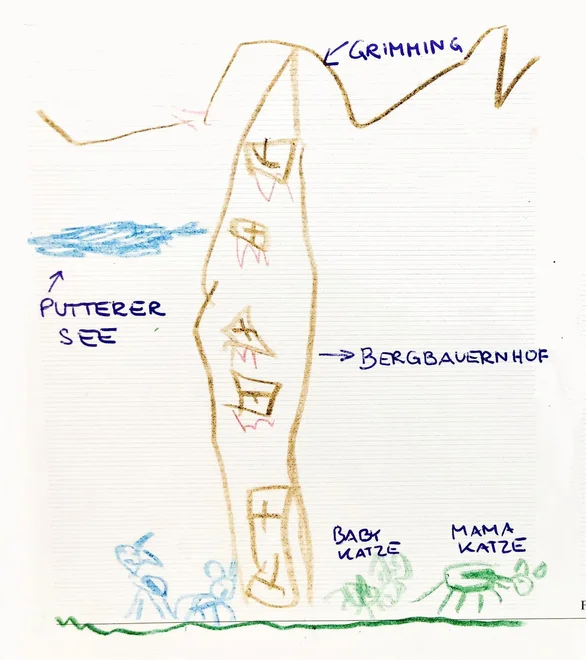 GRIMMING
PUTTERER
SEE
BERGBAUERNHOF
BABY
KATZE
MAMA
KATZE